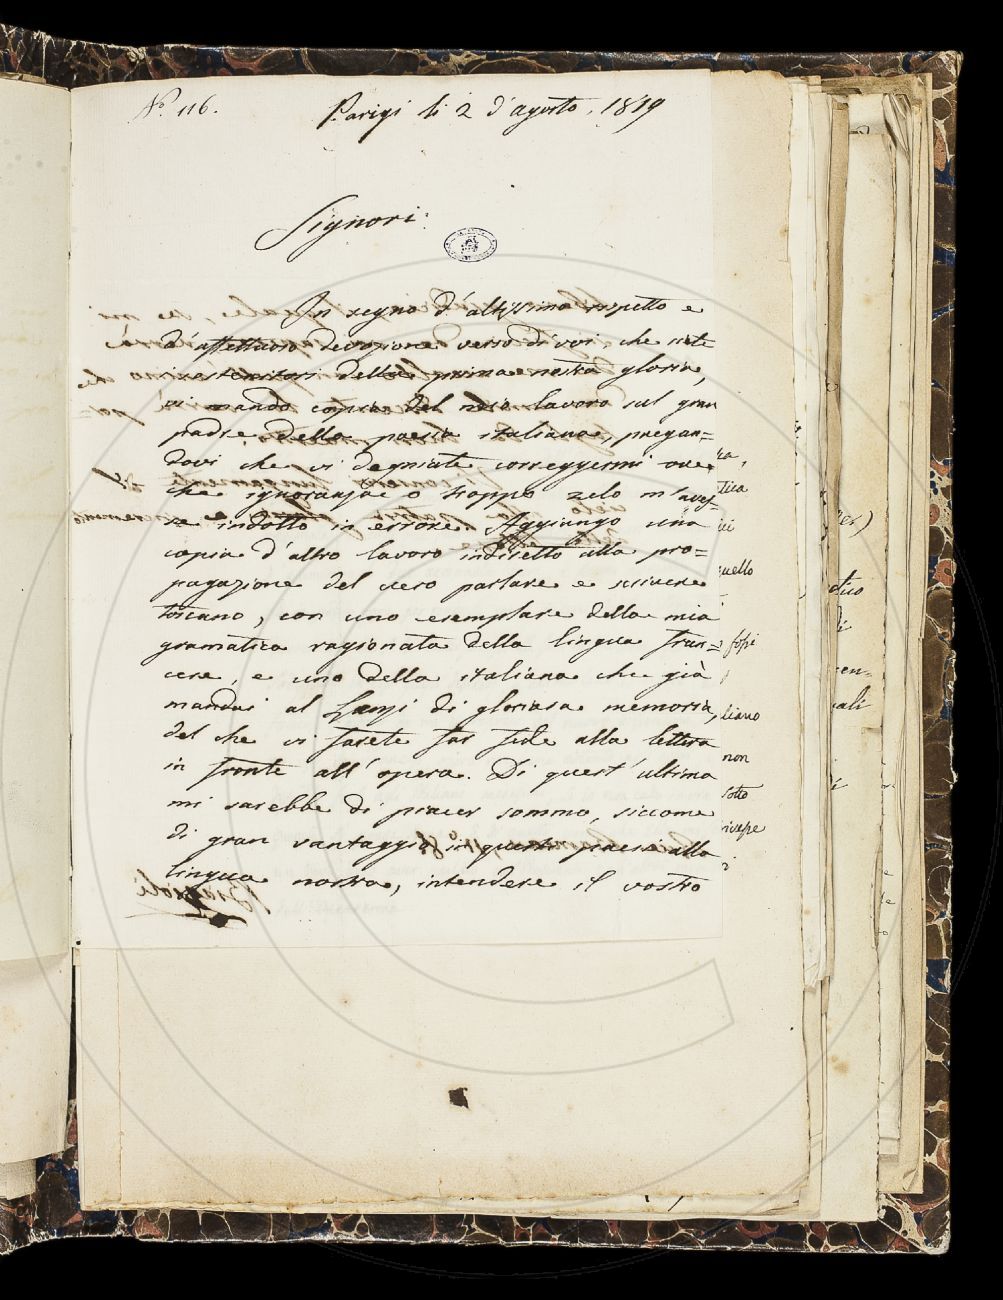 N.° 116.
Parigi li 2 d'agosto, 1819
Signori:
In segno d'altissimo rispetto e
d'affettuosa devozione verso di voi, che siete
i sostenitori della prima nostra gloria,
vi mando copia del mio lavoro sul gran
padre della poesia italiana, pregan=
dovi che vi degniate correggermi ove
che ignoranza o troppo zelo m'aves=
se indotto in errore. Aggiungo una
copia d'altro lavoro indiretto alla pro=
pagazione del vero parlare e scrivere
toscano, con uno esemplare della mia
gramatica ragionata della lingua fran=
cese, e uno della italiana che già
mandai al Lanzi di gloriosa memoria,
del che vi farete far fede alla lettera
in fronte all'opera. Di quest'ultima
mi sarebbe di piacer sommo, siccome
di gran vantaggio in questo paese alla
lingua nostra, intendere il vostro
tica
quello
liano
non
sotto